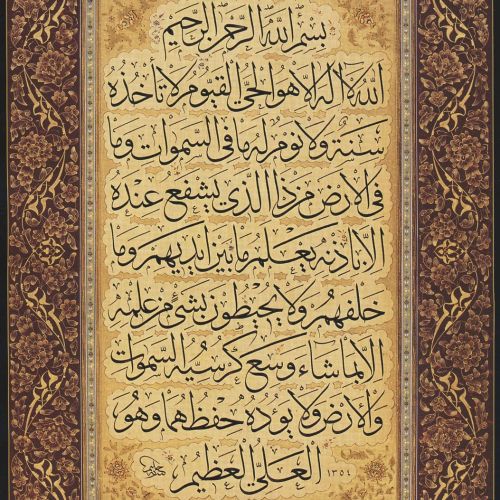 بسم الله الرحمن الرحيم
الله لا اله الا هو الحي القيوم لا تأخذه
سنة ولا نوم له ما في السموات وما
في الارض من ذا الذي يشفع عنده
الا باذنه يعلم ما بين ايديهم وما
خلفهم ولا يحيطون بشئ من علمه
الا بما شاء وسع كرسيه السموات
والارض ولا يؤده حفظهما وهو
العلي العظيم ١٣٥٤